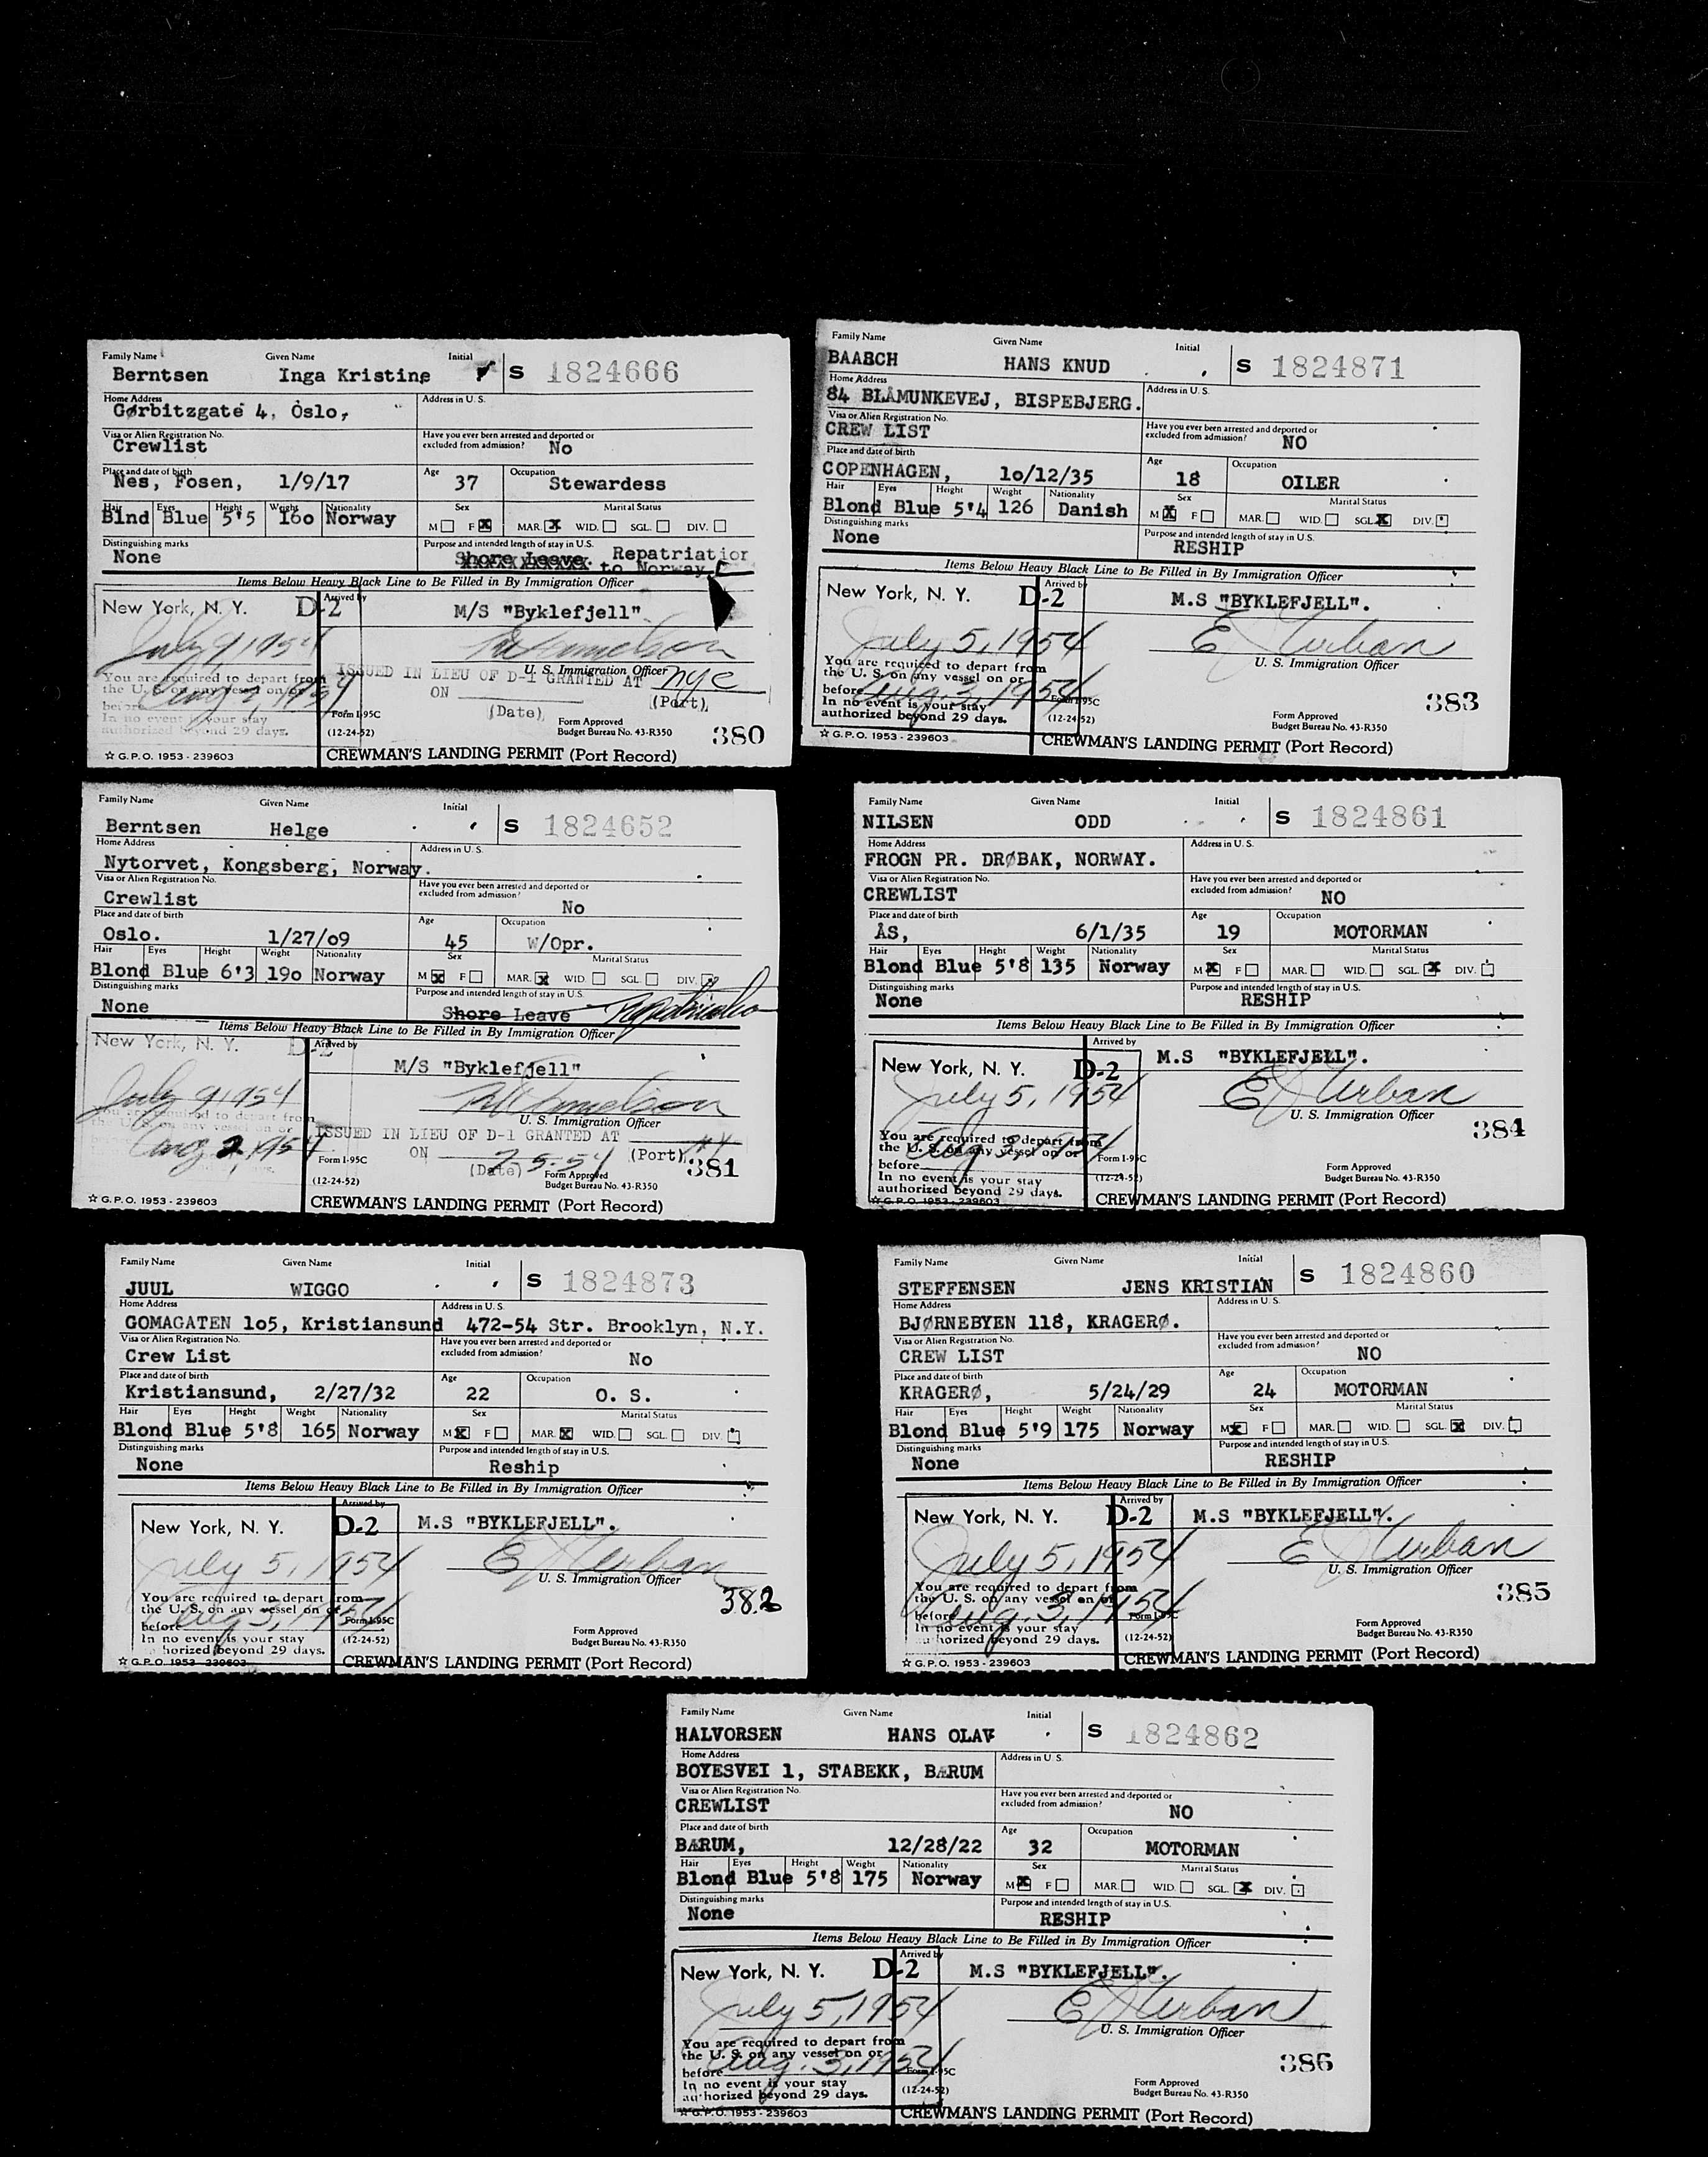 Family Name Given Name Initial
Berntsen Inga Kristine S 1824666
Home Address Address in U. S.
Gørbitzgate 4, Oslo,
Visa or Alien Registration No. Have you ever been arrested and deported or
Crewlist excluded from admission? No
Place and date of birth Age Occupation
Nes, Fosen, 1/9/17 37 Stewardess
Hair Eyes Height Weight Nationality Sex Marital Status
Blnd Blue 5'5 160 Norway M F X MAR. X WID. SGL. DIV.
Distinguishing marks Purpose and intended length of stay in U.S.
None Shore Leave. Repatriation
to Norway
Items Below Heavy Black Line to Be Filled in By Immigration Officer
New York, N. Y. D-2 Arrived by
M/S "Byklefjell"
July 9, 1954
You are required to depart from U. S. Immigration Officer
the U. S. on any vessel on or ISSUED IN LIEU OF D-1 GRANTED AT nyc
before Aug 2, 1954 ON (Date) (Port)
In no event is your stay Form I-95C Form Approved
authorized beyond 29 days. (12-24-52) Budget Bureau No. 43-R350 380
☆ G.P.O. 1953 - 239603 CREWMAN'S LANDING PERMIT (Port Record)
Family Name Given Name Initial
BAASCH HANS KNUD S 1824871
Home Address Address in U. S.
84 BLÅMUNKEVEJ, BISPEBJERG.
Visa or Alien Registration No. Have you ever been arrested and deported or
CREW LIST excluded from admission? NO
Place and date of birth Age Occupation
COPENHAGEN, 10/12/35 18 OILER
Hair Eyes Height Weight Nationality Sex Marital Status
Blond Blue 5'4 126 Danish M X F MAR. WID. SGL. X DIV.
Distinguishing marks Purpose and intended length of stay in U.S.
None RESHIP
Items Below Heavy Black Line to Be Filled in By Immigration Officer
New York, N. Y. D-2 Arrived by
M.S "BYKLEFJELL".
July 5, 1954 E J Urban
You are required to depart from U. S. Immigration Officer
the U. S. on any vessel on or
before Aug. 3, 1954 Form I-95C 383
In no event is your stay (12-24-52) Form Approved
authorized beyond 29 days. Budget Bureau No. 43-R350
☆ G.P.O. 1953 - 239603 CREWMAN'S LANDING PERMIT (Port Record)
Family Name Given Name Initial
Berntsen Helge S 1824652
Home Address Address in U. S.
Nytorvet, Kongsberg, Norway.
Visa or Alien Registration No. Have you ever been arrested and deported or
Crewlist excluded from admission? No
Place and date of birth Age Occupation
Oslo. 1/27/09 45 W/Opr.
Hair Eyes Height Weight Nationality Sex Marital Status
Blond Blue 6'3 190 Norway M X F MAR. X WID. SGL. DIV.
Distinguishing marks Purpose and intended length of stay in U.S.
None Shore Leave
Items Below Heavy Black Line to Be Filled in By Immigration Officer
New York, N. Y. D-2 Arrived by
M/S "Byklefjell"
July 9 1954
You are required to depart from U. S. Immigration Officer
the U. S. on any vessel on or ISSUED IN LIEU OF D-1 GRANTED AT
Aug 2, 1954 ON 7-5-54 (Date) (Port)
Form I-95C Form Approved 381
(12-24-52) Budget Bureau No. 43-R350
☆ G.P.O. 1953 - 239603 CREWMAN'S LANDING PERMIT (Port Record)
Family Name Given Name Initial
NILSEN ODD S 1824861
Home Address Address in U. S.
FROGN PR. DRØBAK, NORWAY.
Visa or Alien Registration No. Have you ever been arrested and deported or
CREWLIST excluded from admission? NO
Place and date of birth Age Occupation
ÅS, 6/1/35 19 MOTORMAN
Hair Eyes Height Weight Nationality Sex Marital Status
Blond Blue 5'8 135 Norway M X F MAR. WID. SGL. X DIV.
Distinguishing marks Purpose and intended length of stay in U.S.
None RESHIP
Items Below Heavy Black Line to Be Filled in By Immigration Officer
New York, N. Y. D-2 Arrived by
M.S "BYKLEFJELL".
July 5, 1954 E J Urban
U. S. Immigration Officer
You are required to depart from 384
the U. S. on any vessel on or
before Aug 3, 1954 Form I-95C
In no event is your stay (12-24-52) Form Approved
authorized beyond 29 days. Budget Bureau No. 43-R350
☆ G.P.O. 1953 - 239603 CREWMAN'S LANDING PERMIT (Port Record)
Family Name Given Name Initial
JUUL WIGGO S 1824873
Home Address Address in U. S.
GOMAGATEN 105, Kristiansund 472-54 Str. Brooklyn, N.Y.
Visa or Alien Registration No. Have you ever been arrested and deported or
Crew List excluded from admission? No
Place and date of birth Age Occupation
Kristiansund, 2/27/32 22 O. S.
Hair Eyes Height Weight Nationality Sex Marital Status
Blond Blue 5'8 165 Norway M X F MAR. X WID. SGL. DIV.
Distinguishing marks Purpose and intended length of stay in U.S.
None Reship
Items Below Heavy Black Line to Be Filled in By Immigration Officer
New York, N. Y. D-2 Arrived by
M.S "BYKLEFJELL".
July 5, 1954 E J Urban
U. S. Immigration Officer
You are required to depart from 382
the U. S. on any vessel on or
before Aug 3, 1954 Form I-95C
In no event is your stay (12-24-52) Form Approved
authorized beyond 29 days. Budget Bureau No. 43-R350
☆ G.P.O. 1953 - 239603 CREWMAN'S LANDING PERMIT (Port Record)
Family Name Given Name Initial
STEFFENSEN JENS KRISTIAN S 1824860
Home Address Address in U. S.
BJØRNEBYEN 118, KRAGERØ.
Visa or Alien Registration No. Have you ever been arrested and deported or
CREW LIST excluded from admission? NO
Place and date of birth Age Occupation
KRAGERØ, 5/24/29 24 MOTORMAN
Hair Eyes Height Weight Nationality Sex Marital Status
Blond Blue 5'9 175 Norway M X F MAR. WID. SGL. X DIV.
Distinguishing marks Purpose and intended length of stay in U.S.
None RESHIP
Items Below Heavy Black Line to Be Filled in By Immigration Officer
New York, N. Y. D-2 Arrived by
M.S "BYKLEFJELL".
July 5, 1954 E J Urban
U. S. Immigration Officer
You are required to depart from 385
the U. S. on any vessel on or
before Aug. 3, 1954 Form I-95C
In no event is your stay (12-24-52) Form Approved
authorized beyond 29 days. Budget Bureau No. 43-R350
☆ G.P.O. 1953 - 239603 CREWMAN'S LANDING PERMIT (Port Record)
Family Name Given Name Initial
HALVORSEN HANS OLAV S 1824862
Home Address Address in U. S.
BOYESVEI 1, STABEKK, BÆRUM
Visa or Alien Registration No. Have you ever been arrested and deported or
CREWLIST excluded from admission? NO
Place and date of birth Age Occupation
BÆRUM, 12/28/22 32 MOTORMAN
Hair Eyes Height Weight Nationality Sex Marital Status
Blond Blue 5'8 175 Norway M X F MAR. WID. SGL. X DIV.
Distinguishing marks Purpose and intended length of stay in U.S.
None RESHIP
Items Below Heavy Black Line to Be Filled in By Immigration Officer
New York, N. Y. D-2 Arrived by
M.S "BYKLEFJELL".
July 5, 1954 E J Urban
U. S. Immigration Officer
You are required to depart from
the U. S. on any vessel on or 386
before Aug. 3, 1954 Form I-95C
In no event is your stay (12-24-52) Form Approved
authorized beyond 29 days. Budget Bureau No. 43-R350
☆ G.P.O. 1953 - 239603 CREWMAN'S LANDING PERMIT (Port Record)